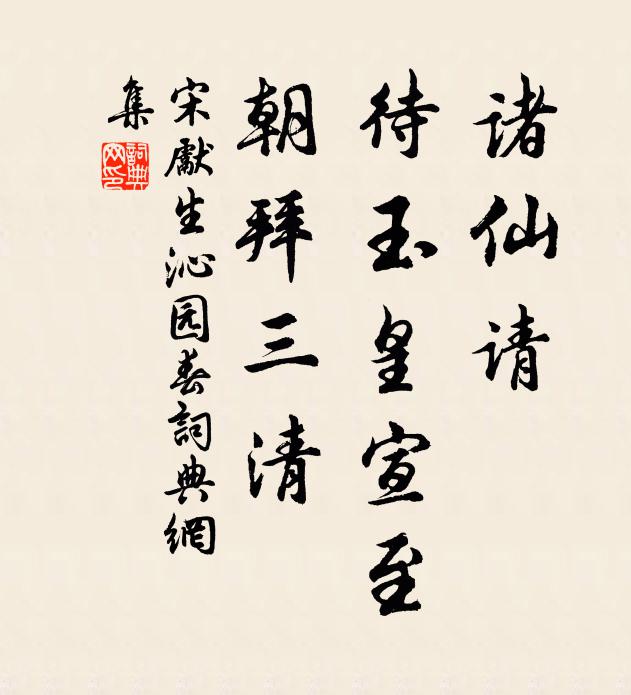 诸仙请
待玉皇宣至
朝拜三清
宋獻生沁园春詞典網
集
詞典网印